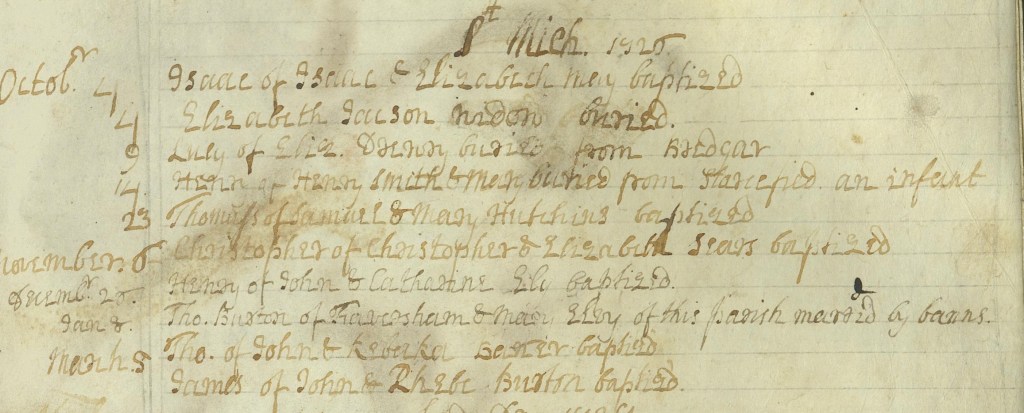 St Mich. 1726.
Octobr. 4 Isaac of Isaac & Elizabeth May baptized
4 Elizabeth Jaison widow buried.
9 Lucy of Eliz. buried from Bredgar
14 Henry of Henry Smith & Mary buried from an infant
23 Thomas of Samuel & Mary Hutchins baptized
November 6 Christopher of Christopher & Elizabeth Sears baptized
Decembr. 26. Henry of John & Catharine Ely baptized.
Jan 8. Tho. Burton of Faversham & Mary Elvy of this Parish married by banns.
March 5 Tho. of John & Rebecka Baker baptied
James of John & Phebe Burton baptied.